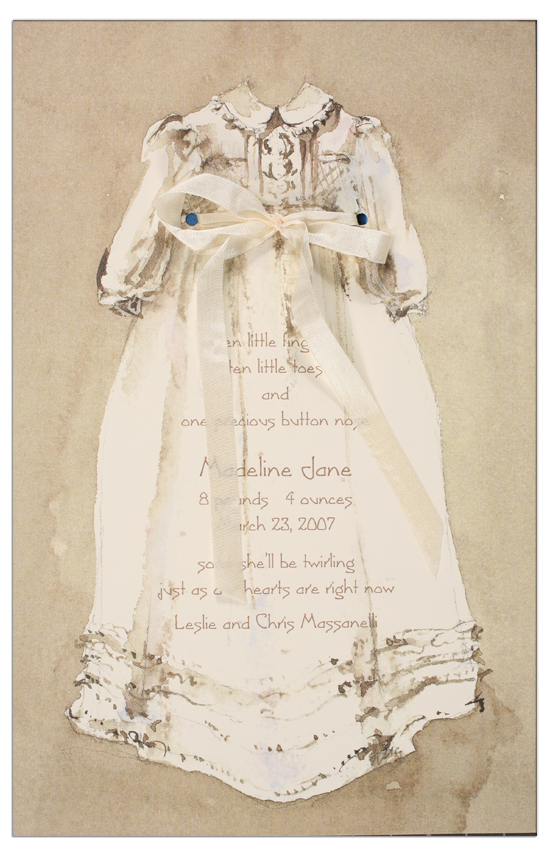 little
ten little toes
and
one precious button nose
Madeline Jane
8 pounds 4 ounces
March 23, 2007
she'll be twirling
just as hearts are right now
Leslie and Chris Massanelli